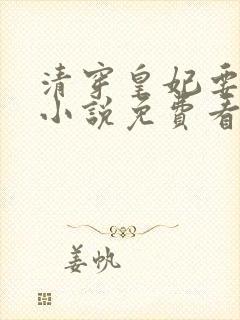 清穿皇妃要
小说免费看
姜帆